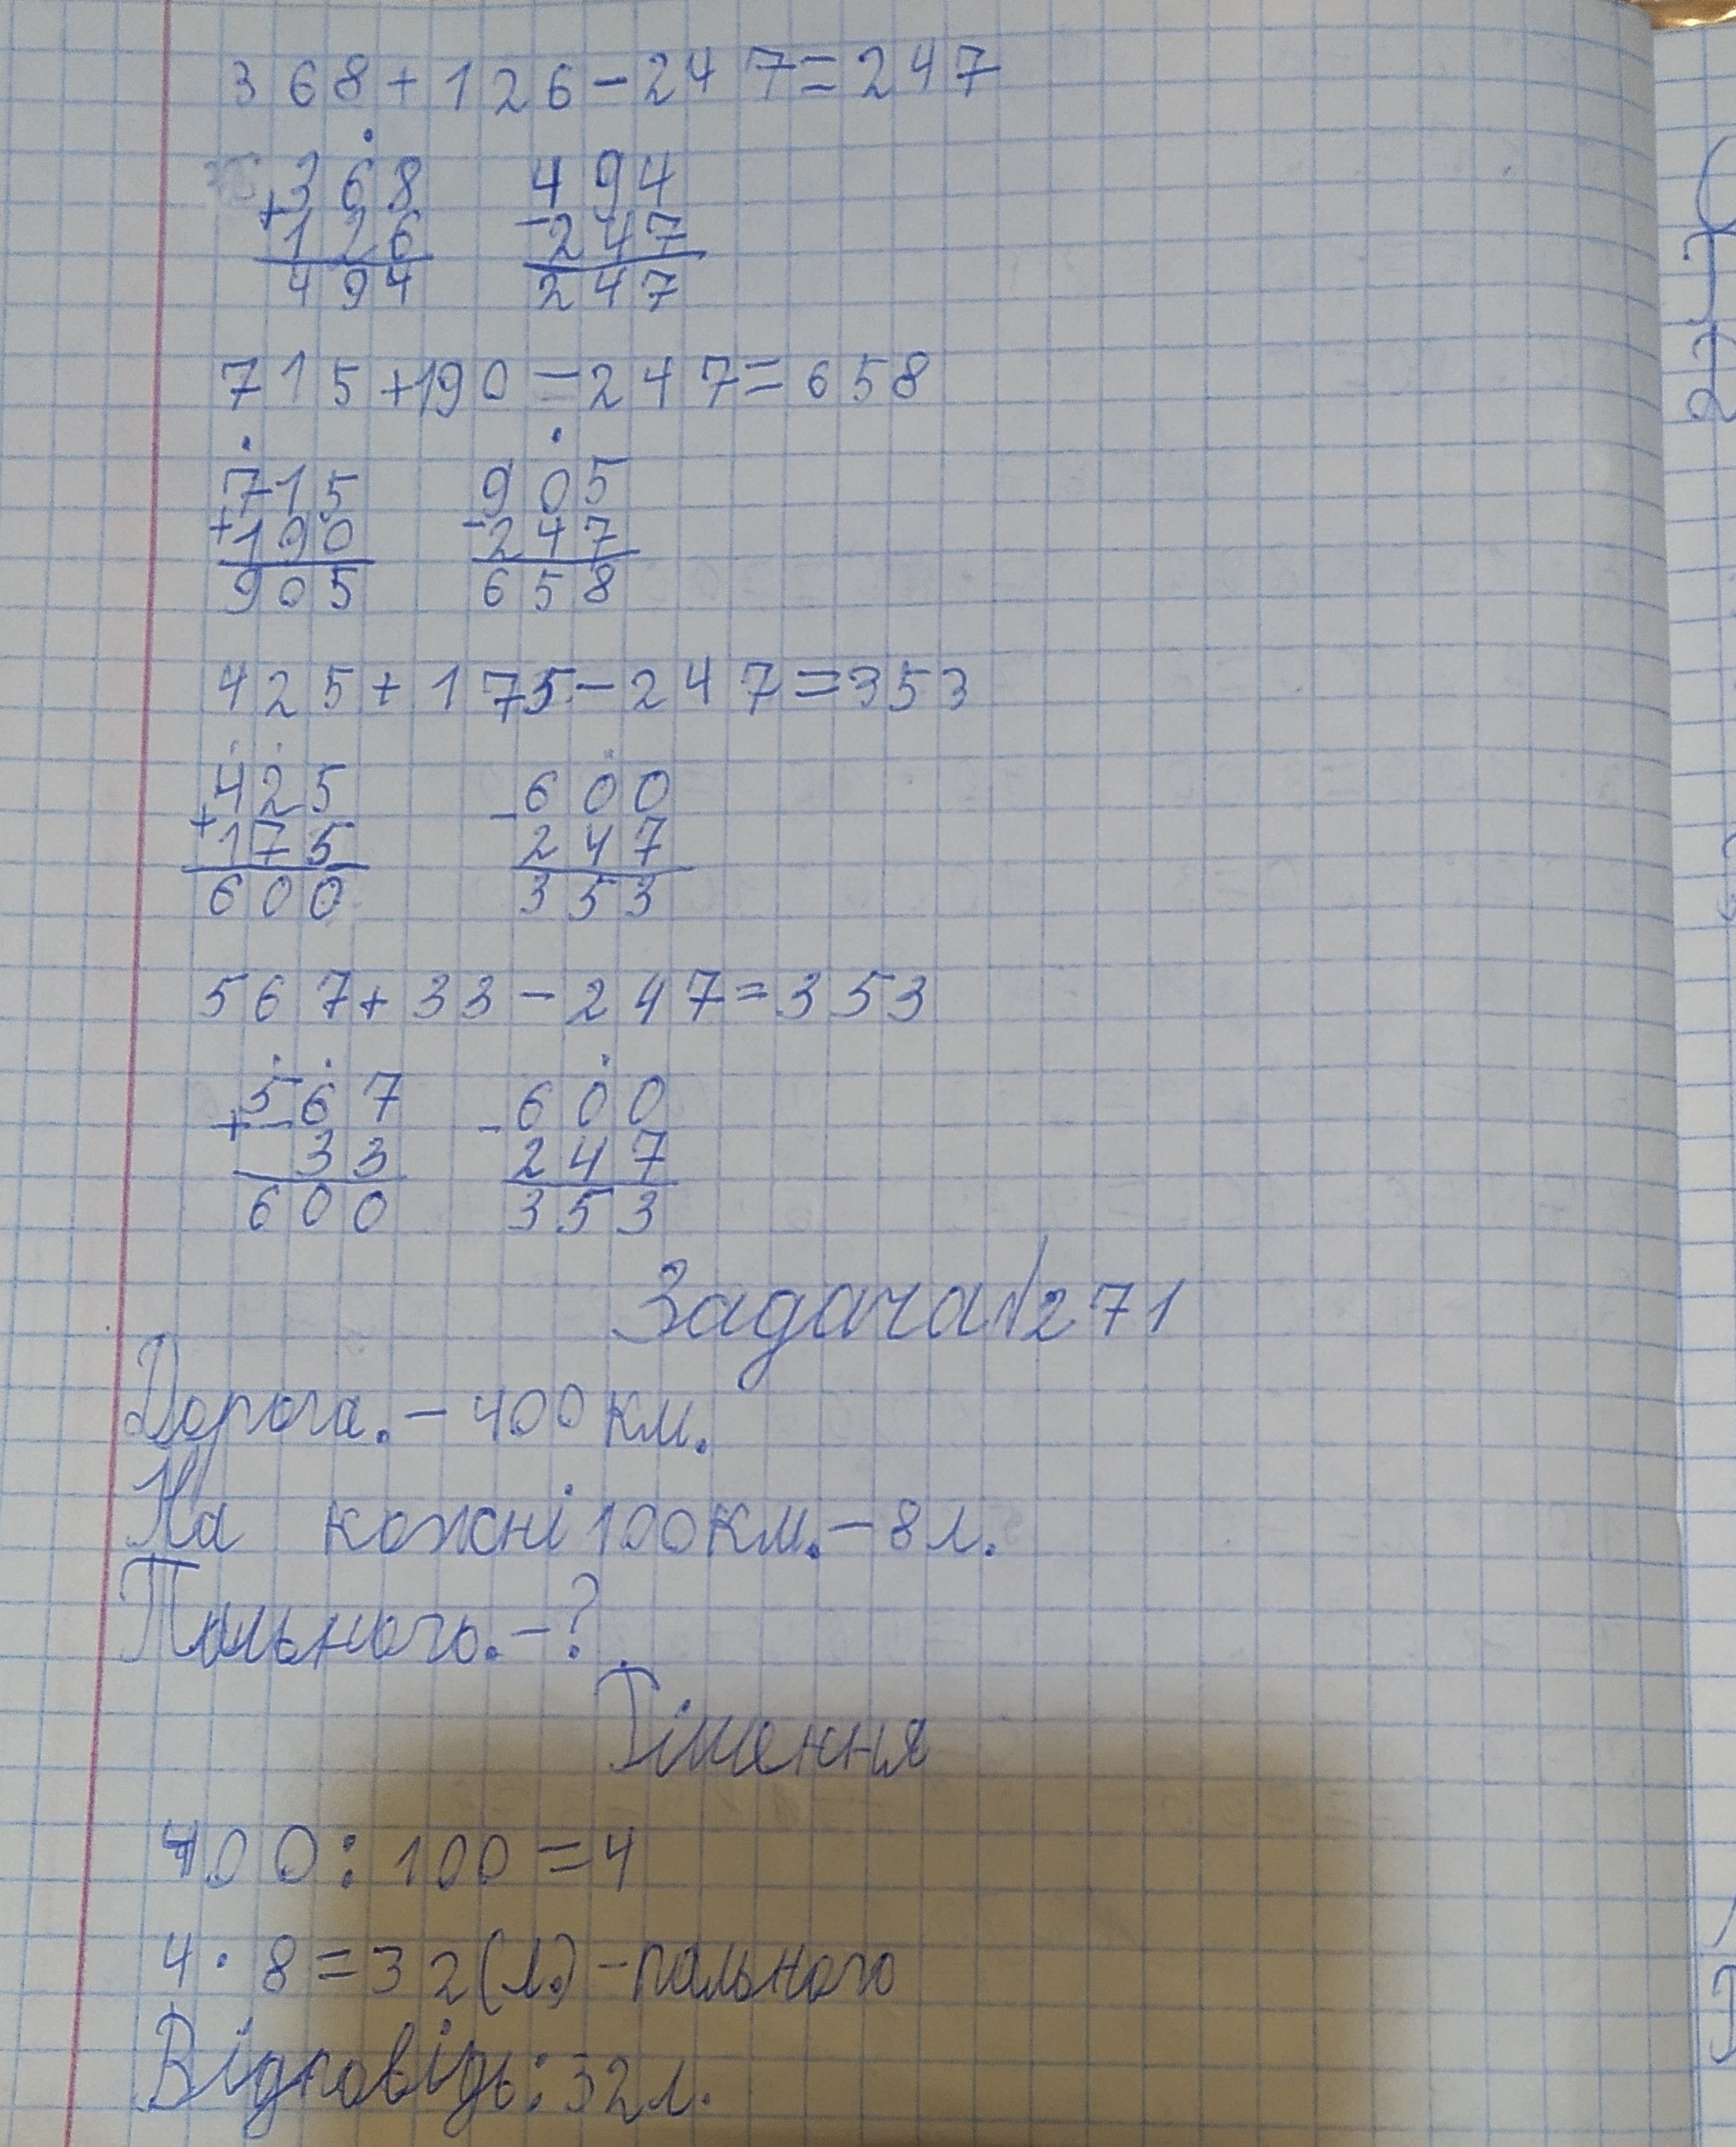 368+126-247=247
368 494
+126 -247
494 247
715+190-247=658
715 905
+190 -247
905 658
425+175-247=353
425 600
+175 -247
600 353
567+33-247=353
567 600
+33 -247
600 353
Задача №271
Дорога.-400 км.
На кожні 100 км.-8л.
Пального.-?
Рішення
400:100=4
4·8=32(л.)-пального
Відповідь:32л.